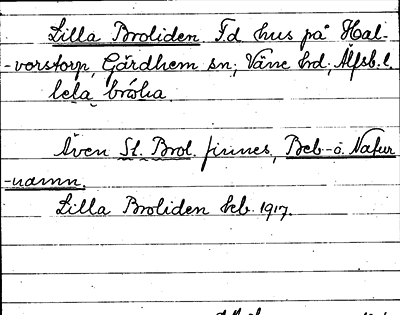 Lilla Broliden Fd hus på Hal-
-vorstorp, Gärdhem sn; Väne hd; Älfsb. l.
lela brólia.
Även St. Brol. finnes, Beb- o. Natur
-namn.
Lilla Broliden keb. 1917.